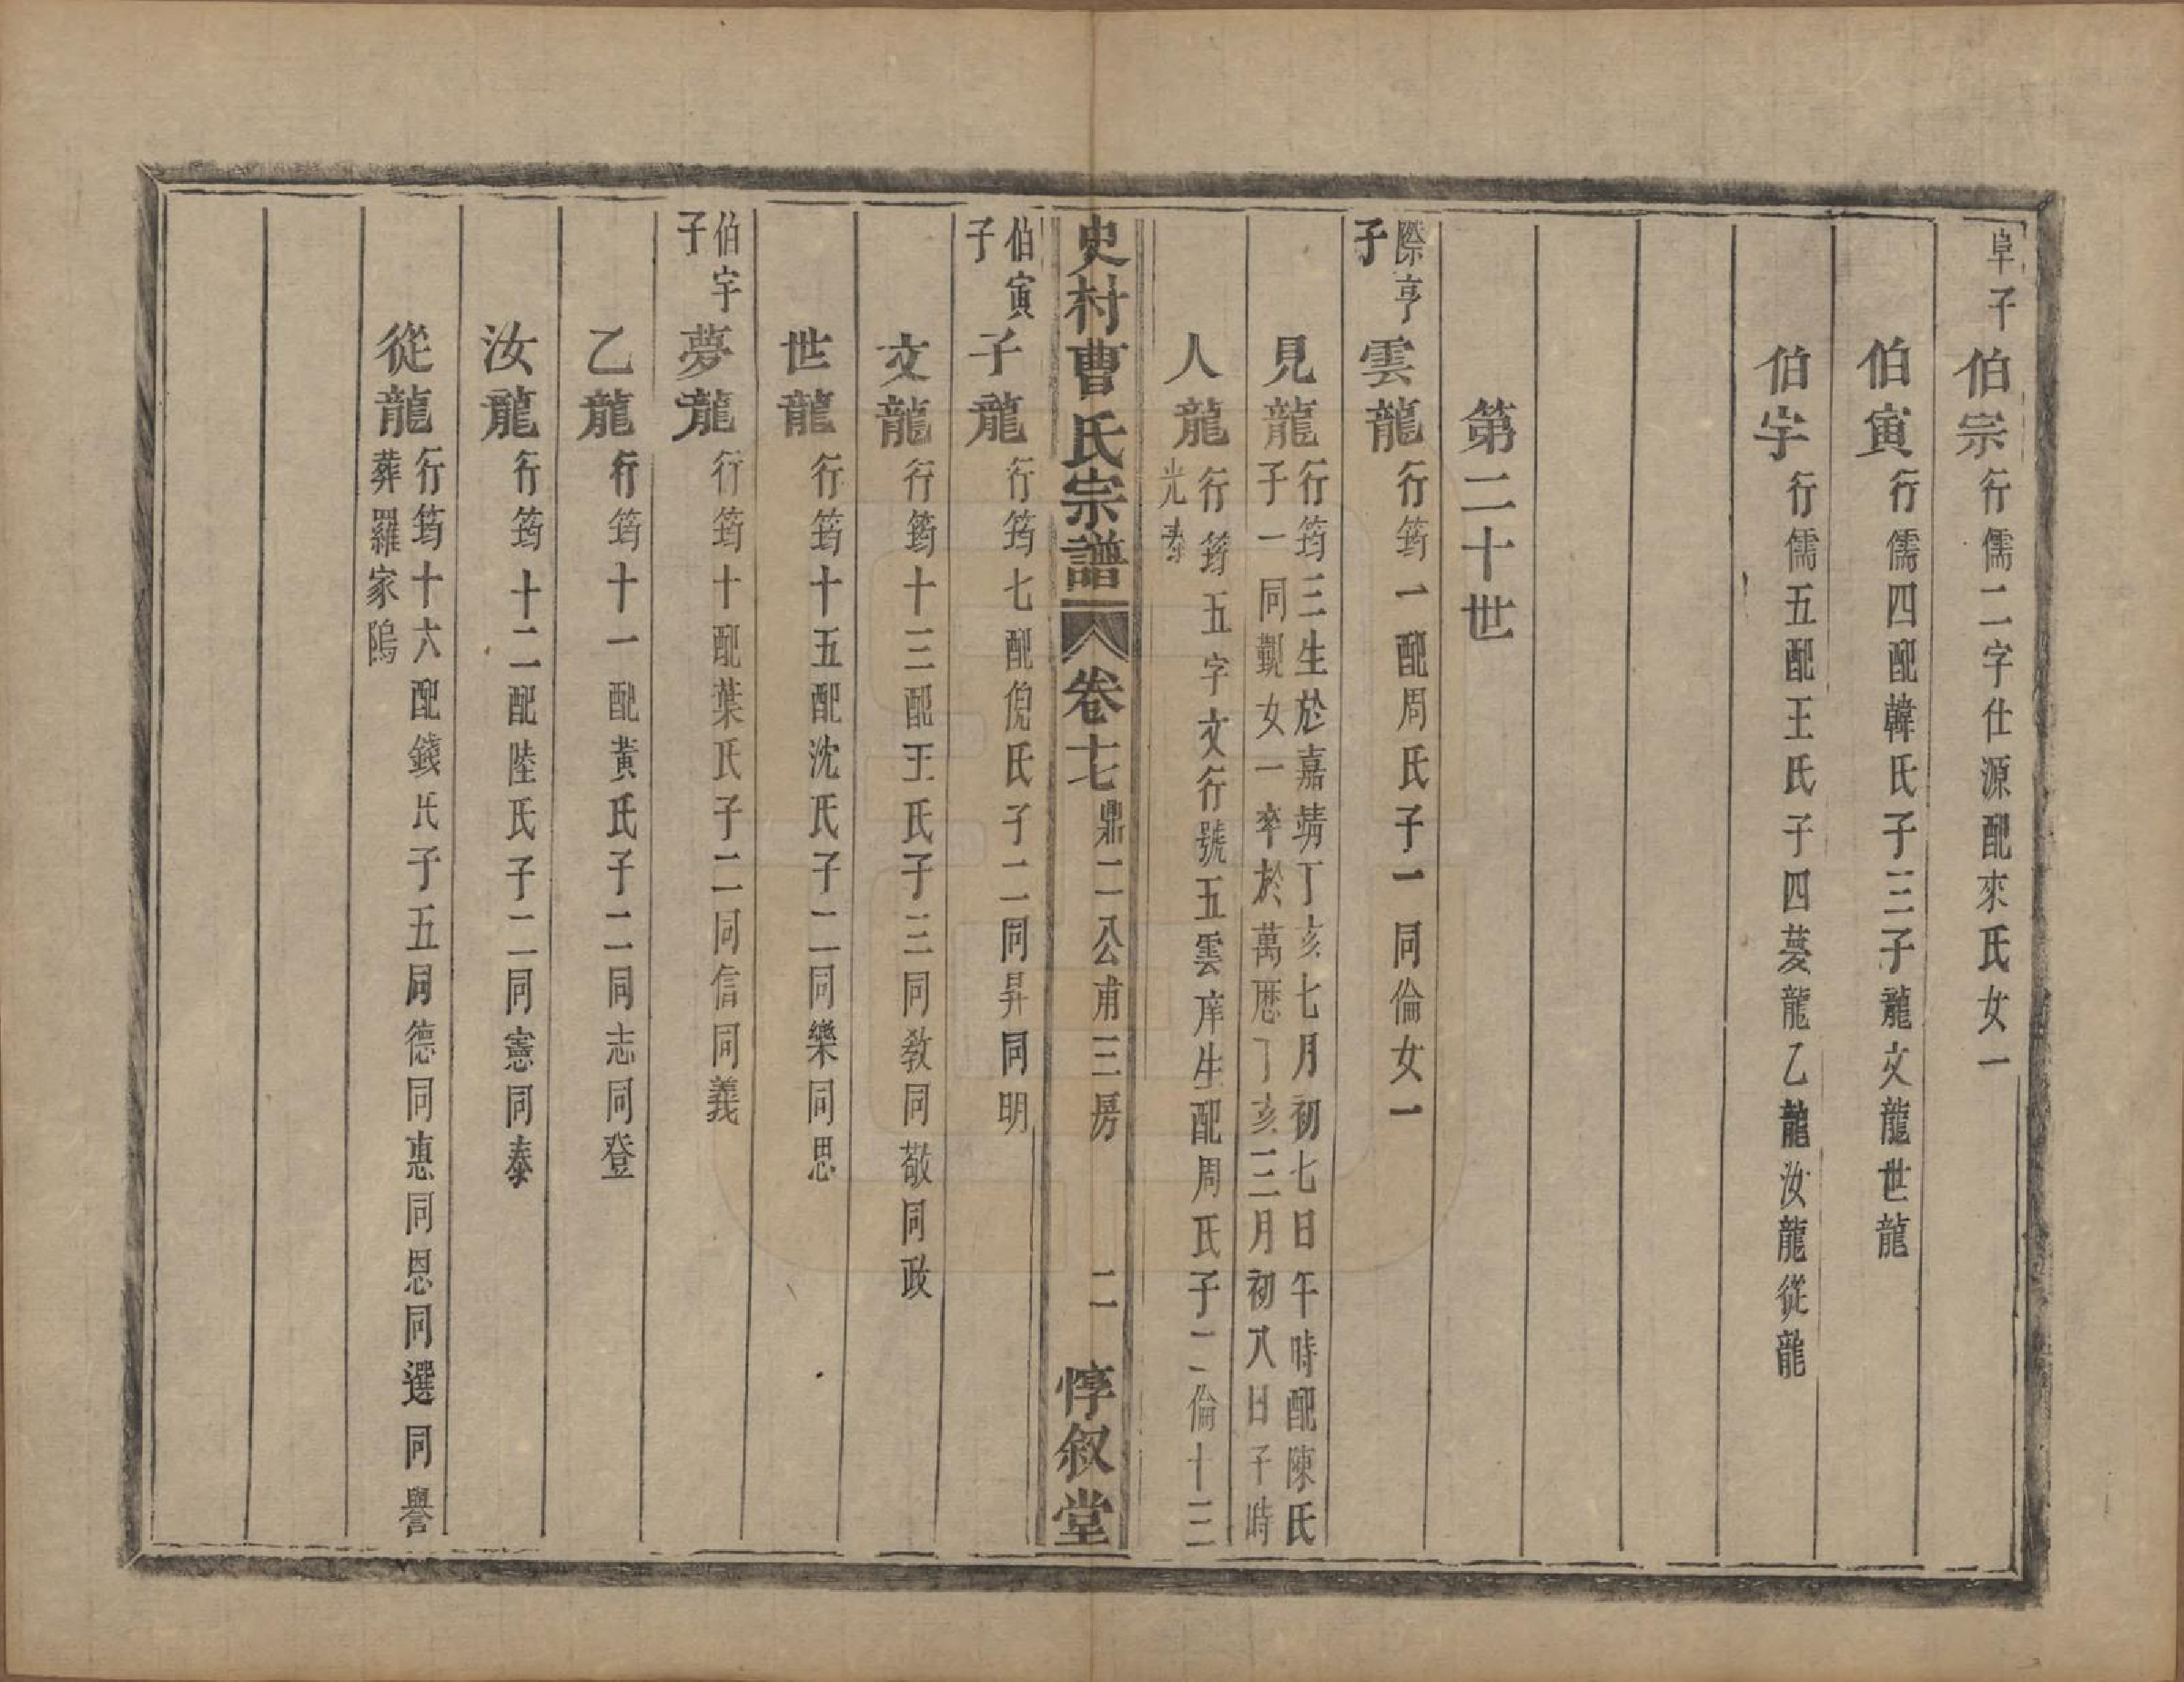 阜子 伯宗 行儒二字仕源配來氏女一
伯寅 行儒四配韓氏子三子龍文龍世龍
伯宇 行儒五配王氏子四夢龍乙龍汝龍從龍
第二十世
際亨子 雲龍 行筠一配周氏子一同倫女一
見龍 行筠三生於嘉靖丁亥七月初七日午時配陳氏
子一同觐女一卒於萬厯丁亥三月初八日子時
人龍 行筠五字文行號五雲庠生配周氏子二倫十三
光泰
史村曹氏宗譜 卷十七 鼎二公甫三房 二 惇叙堂
伯寅子 子龍 行筠七配倪氏子二同昇同明
文龍 行筠十三配王氏子三同敎同敬同政
世龍 行筠十五配沈氏子二同樂同思
伯宇子 夢龍 行筠十配葉氏子二同信同義
乙龍 行筠十一配黃氏子二同志同登
汝龍 行筠十二配陸氏子二同憲同泰
從龍 行筠十六配錢氏子五同德同惠同恩同選同譽
葬羅家鄔